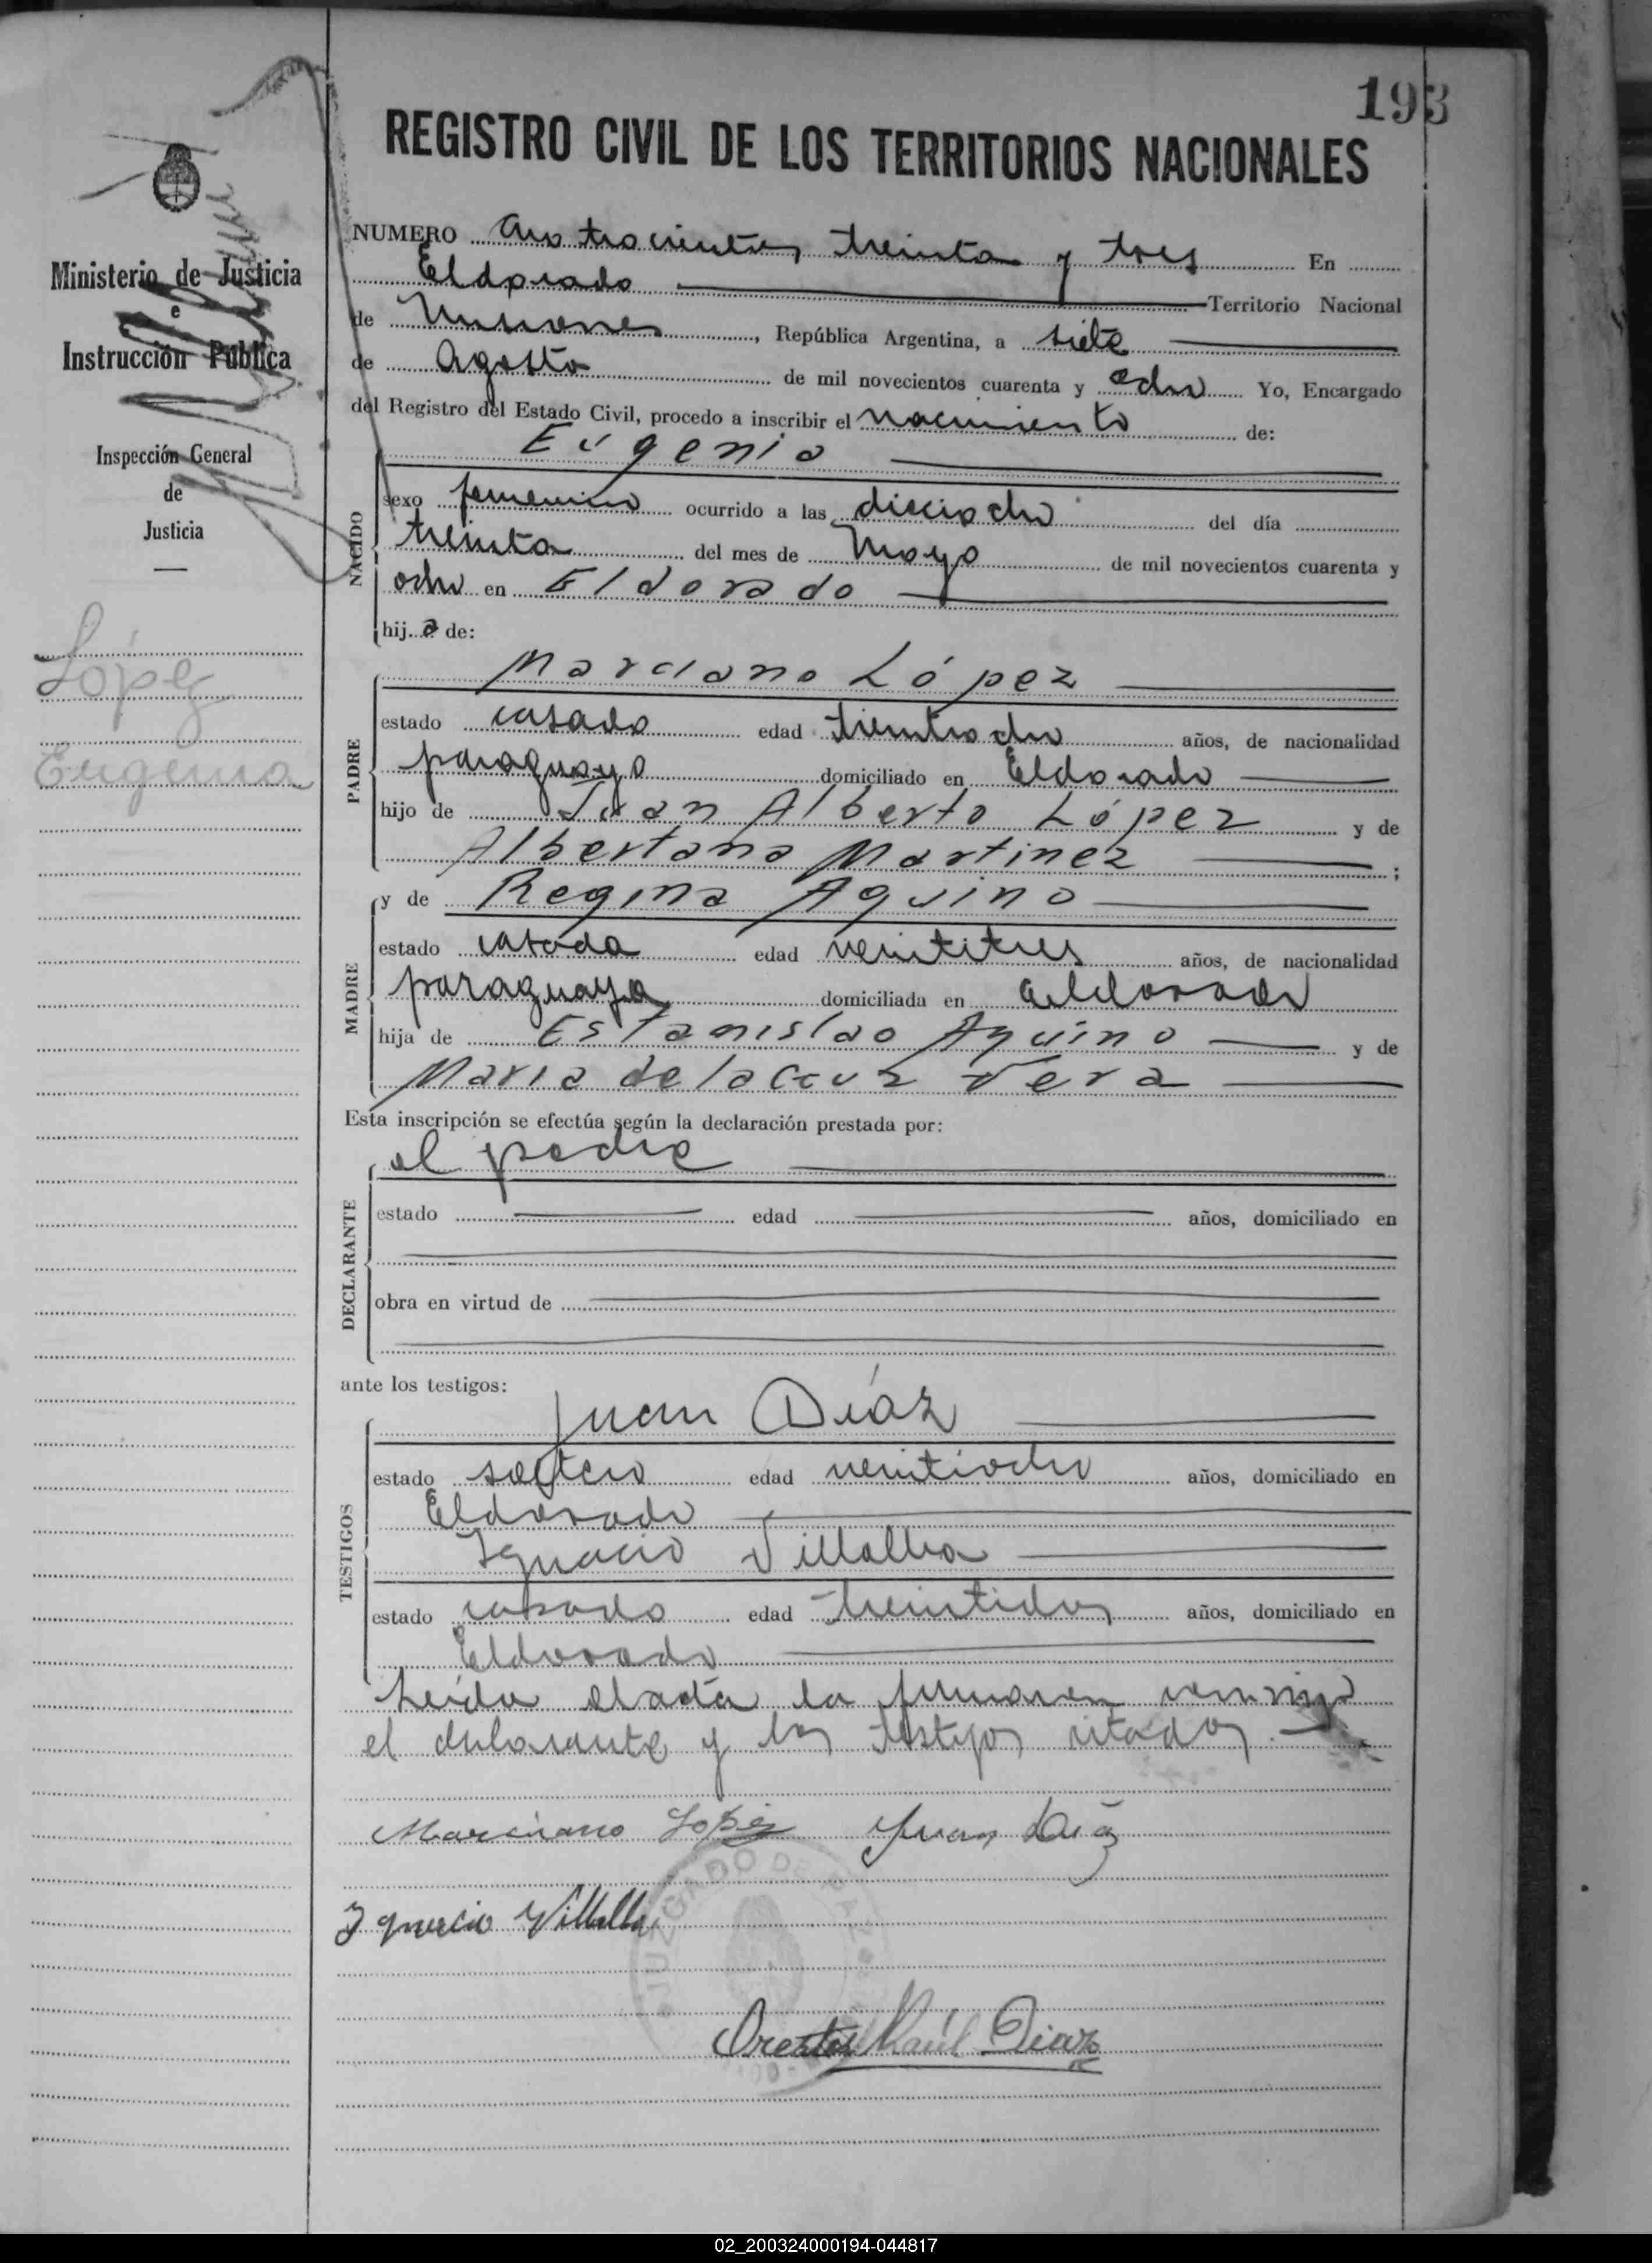 193
REGISTRO CIVIL DE LOS TERRITORIOS NACIONALES
Ministerio de Justicia
e
Instrucción Pública
Inspección General
de
Justicia
López
Eugenia
NUMERO cuatrocientos treinta y tres En
Eldorado Territorio Nacional
de Misiones, República Argentina, a siete
de Agosto de mil novecientos cuarenta y ocho Yo, Encargado
del Registro del Estado Civil, procedo a inscribir el nacimiento de:
NACIDO
Eugenia
sexo femenino ocurrido a las dieciocho del día
treinta del mes de Mayo de mil novecientos cuarenta y
ocho en Eldorado
hij.a de:
PADRE
Marciano López
estado casado edad treintiocho años, de nacionalidad
paraguaya domiciliado en Eldorado
hijo de Juan Alberto López y de
Albertana Martinez ;
MADRE
y de Regina Aquino
estado casada edad veintitres años, de nacionalidad
paraguaya domiciliada en Eldorado
hija de Estanislao Aquino y de
Maria de la Cruz Vera
Esta inscripción se efectúa según la declaración prestada por:
DECLARANTE
el padre
estado edad años, domiciliado en
obra en virtud de
ante los testigos:
TESTIGOS
Juan Díaz
estado soltero edad veintiocho años, domiciliado en
Eldorado
Ignacio Villalba
estado casado edad treintidos años, domiciliado en
Eldorado
Leída el acta la firmaron conmigo
el declarante y los testigos citados.
Marciano López Juan Diaz
Ignacio Villalba
JUZGADO DE PAZ
Orestes Raúl Diaz
02_200324000194-044817